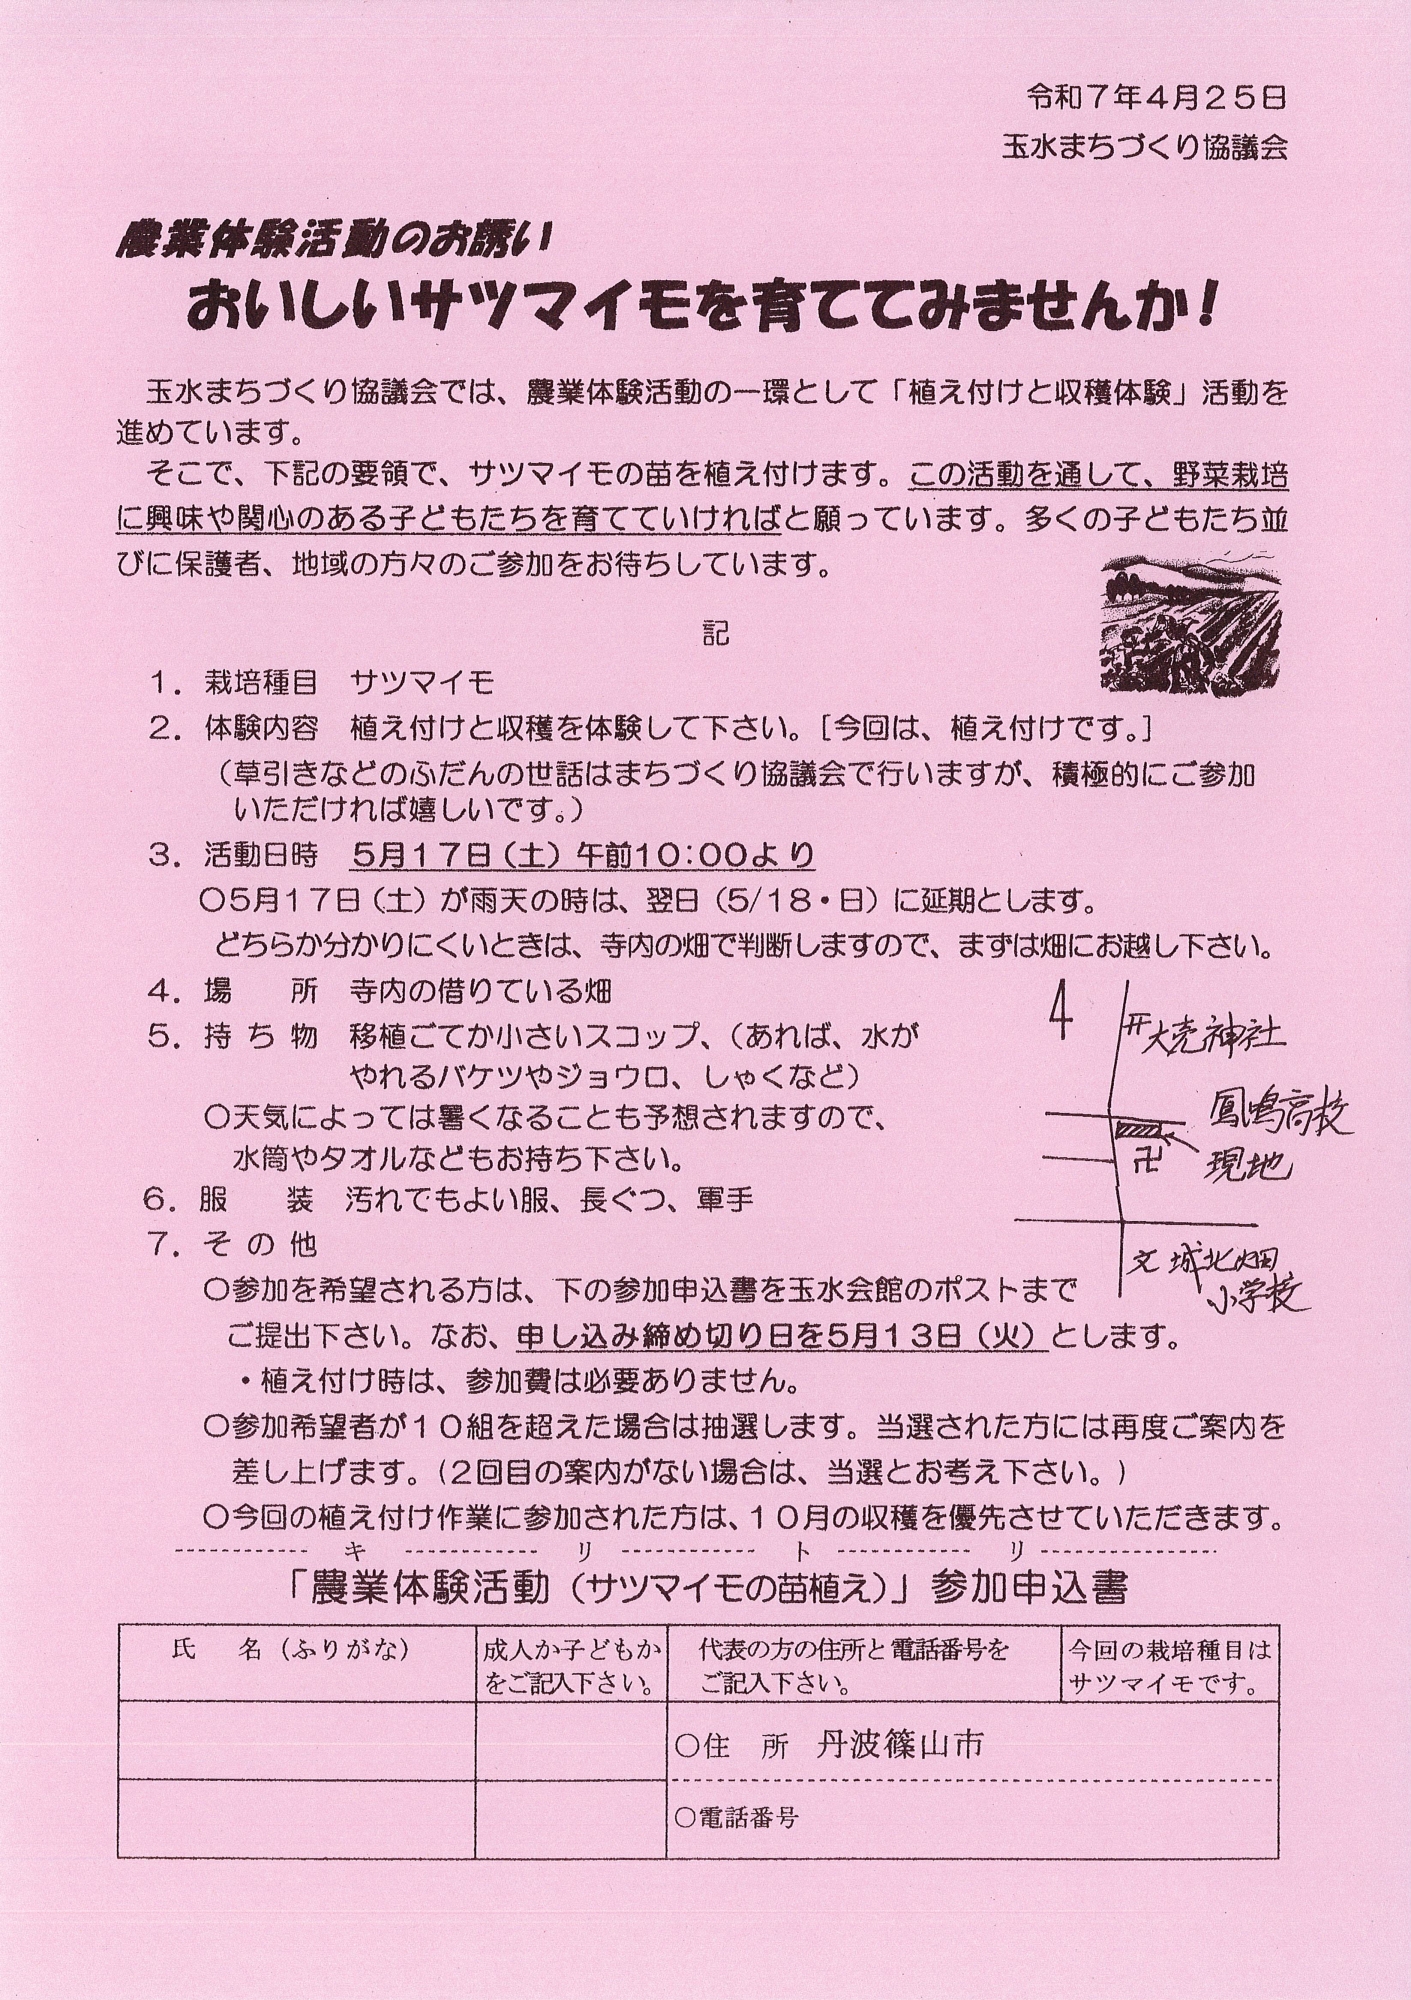 令和７年４月２５日
玉水まちづくり協議会
農業体験活動のお誘い
おいしいサツマイモを育ててみませんか！
玉水まちづくり協議会では、農業体験活動の一環として「植え付けと収穫体験」活動を
進めています。
そこで、下記の要領で、サツマイモの苗を植え付けます。この活動を通して、野菜栽培
に興味や関心のある子どもたちを育てていければと願っています。多くの子どもたち並
びに保護者、地域の方々のご参加をお待ちしています。
記
１．栽培種目　サツマイモ
２．体験内容　植え付けと収穫を体験して下さい。［今回は、植え付けです。］
（草引きなどのふだんの世話はまちづくり協議会で行いますが、積極的にご参加
いただければ嬉しいです。）
３．活動日時　５月１７日（土）午前１０：００より
〇５月１７日（土）が雨天の時は、翌日（５/１８・日）に延期とします。
どちらか分かりにくいときは、寺内の畑で判断しますので、まずは畑にお越し下さい。
４．場　　所　寺内の借りている畑
５．持 ち 物　移植ごてか小さいスコップ、（あれば、水が
やれるバケツやジョウロ、しゃくなど）
〇天気によっては暑くなることも予想されますので、
水筒やタオルなどもお持ち下さい。
６．服　　装　汚れてもよい服、長ぐつ、軍手
７．そ の 他
大売神社
鳳鳴高校
現地
卍
文 城北畑
小学校
〇参加を希望される方は、下の参加申込書を玉水会館のポストまで
ご提出下さい。なお、申し込み締め切り日を５月１３日（火）とします。
・植え付け時は、参加費は必要ありません。
〇参加希望者が１０組を超えた場合は抽選します。当選された方には再度ご案内を
差し上げます。（２回目の案内がない場合は、当選とお考え下さい。）
〇今回の植え付け作業に参加された方は、１０月の収穫を優先させていただきます。
キ　リ　ト　リ
「農業体験活動（サツマイモの苗植え）」参加申込書
氏　名（ふりがな）
成人か子どもか
をご記入下さい。
代表の方の住所と電話番号を
ご記入下さい。
今回の栽培種目は
サツマイモです。
〇住　所　丹波篠山市
〇電話番号